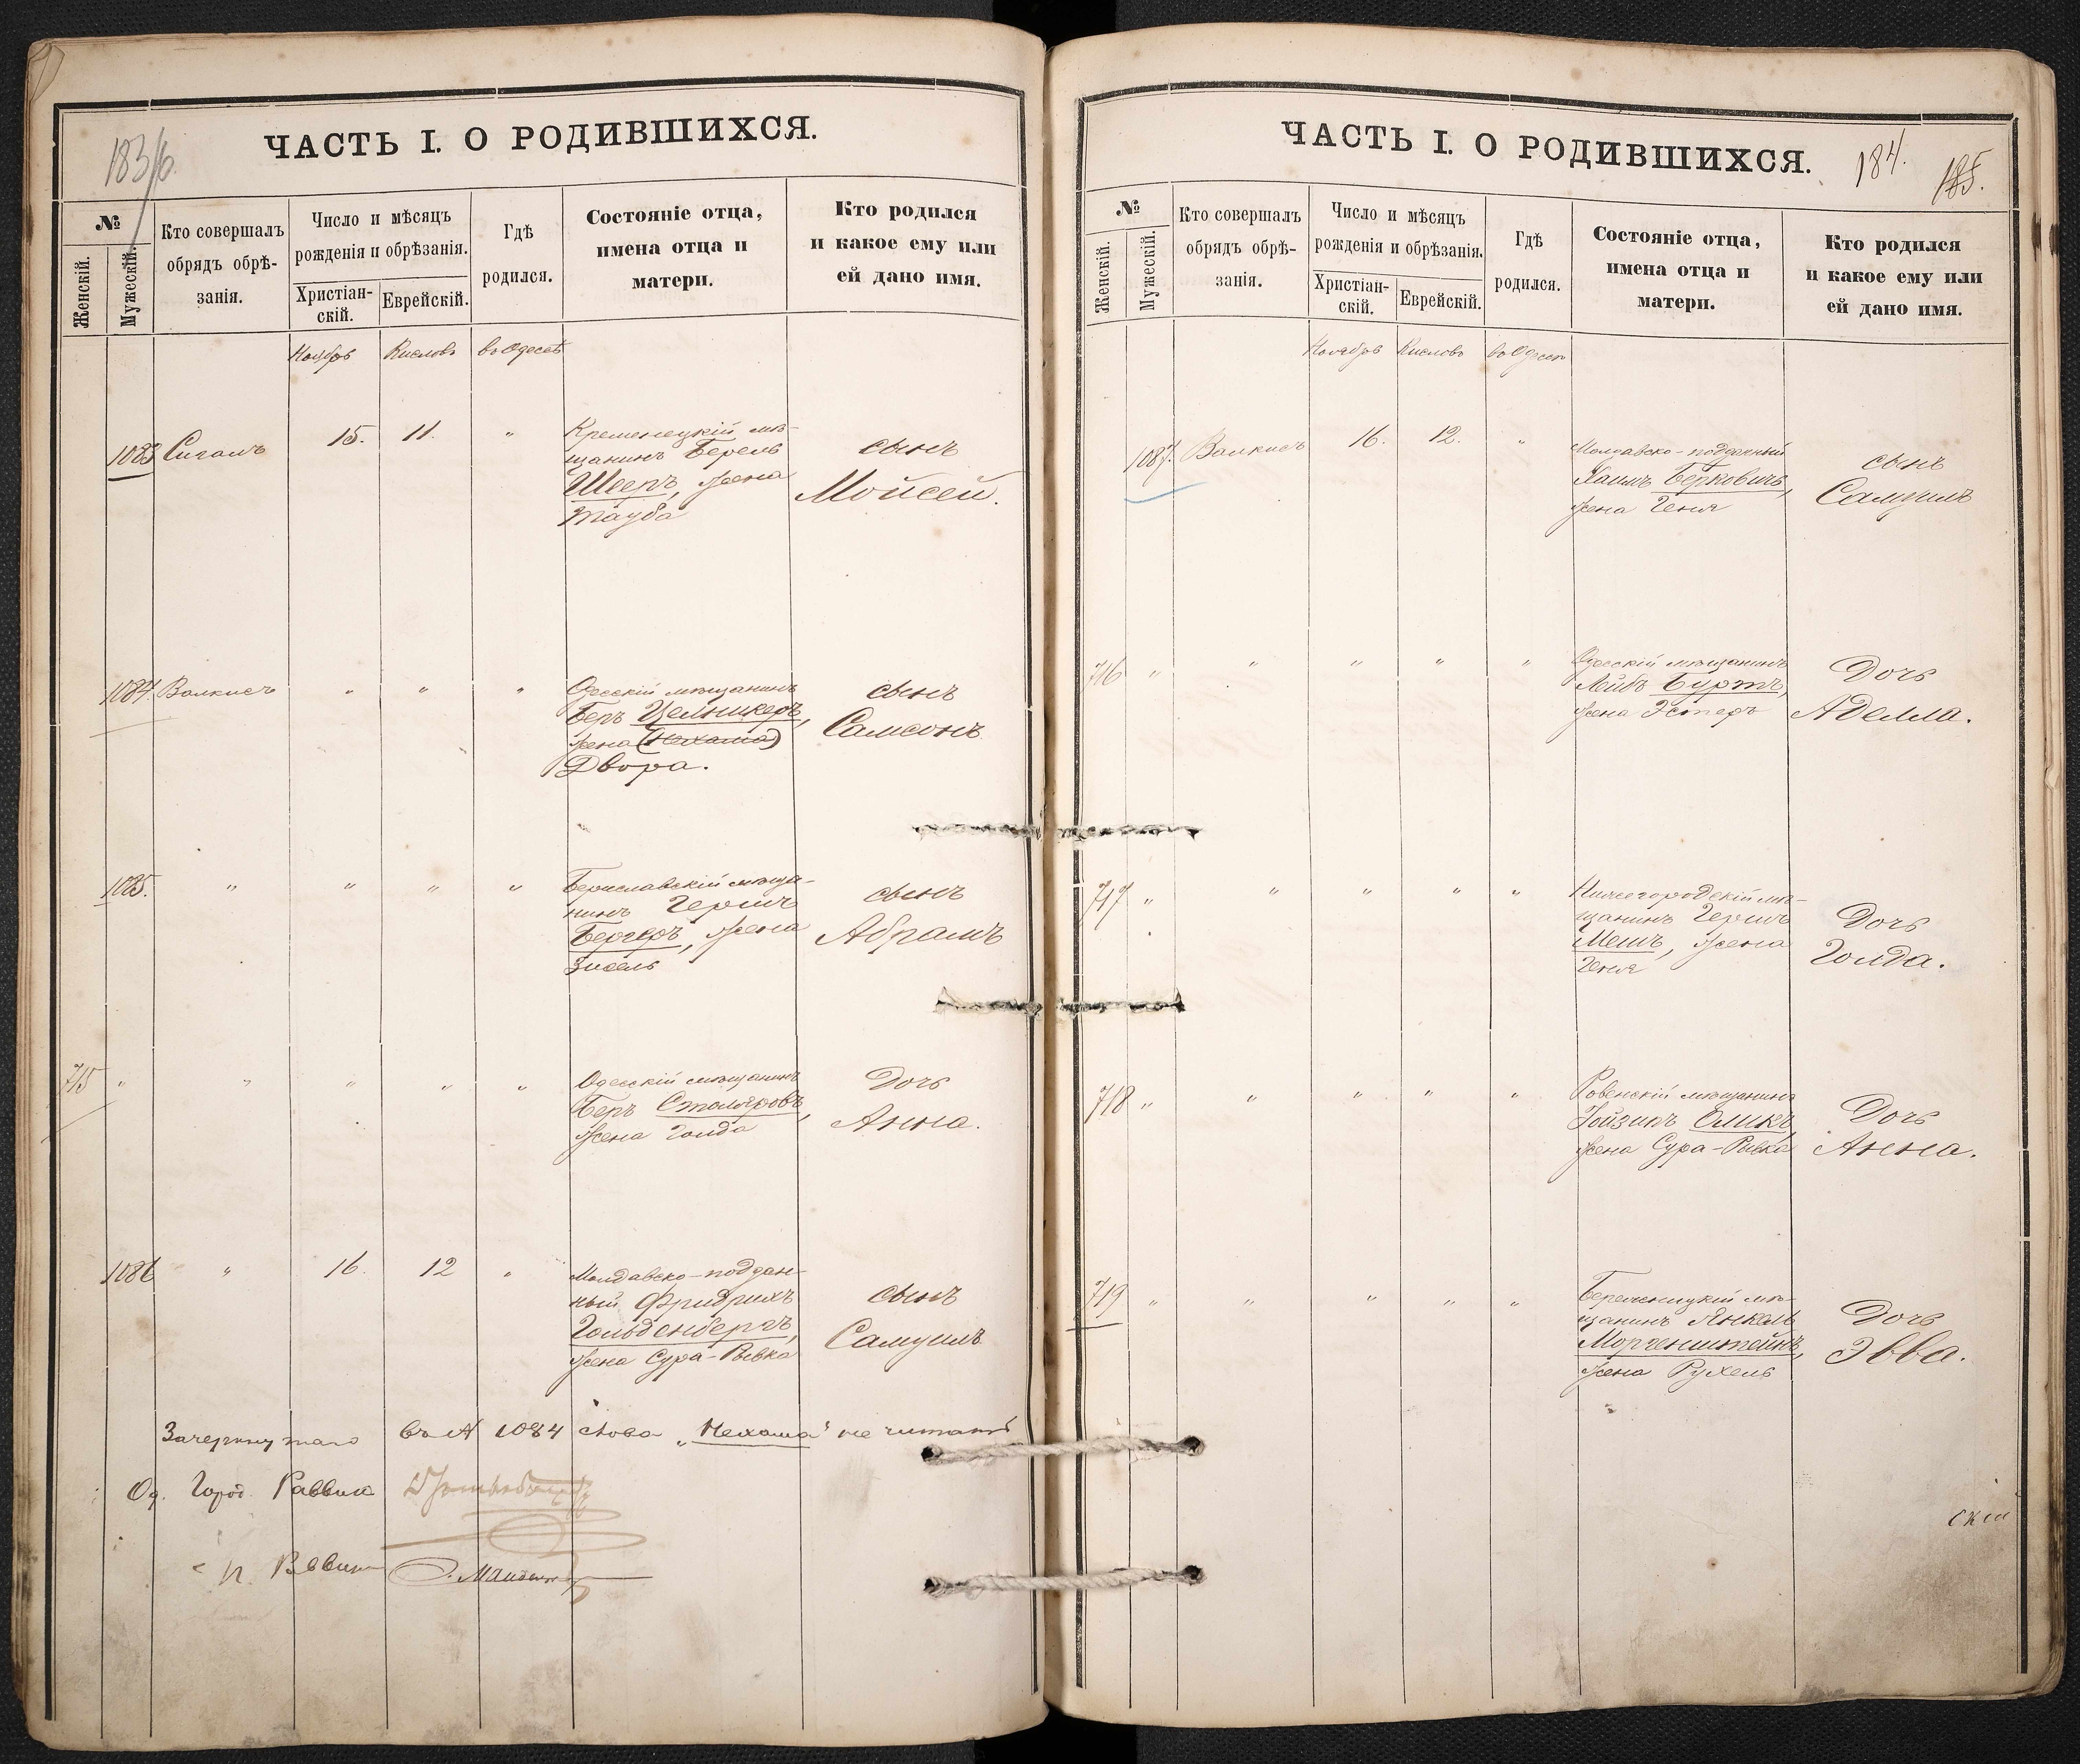 183 об.
ЧАСТЬ I. О РОДИВШИХСЯ.
№
Женскій.
Мужескій.
Кто совершалъ
обрядъ обрѣ-
занія.
Число и мѣсяцъ
рожденія и обрѣзанія.
Христіан-
скій.
Еврейскій.
Гдѣ
родился.
Состояніе отца,
имена отца и
матери.
Кто родился
и какое ему или
ей дано имя.
Ноябрь Кислевъ въ Одессѣ
1083 Сигалъ 15. 11. "
Кременецкій мѣ-
щанинъ Берель
Шееръ, жена
Тауба
сынъ
Мойсей.
1084. Валкисъ " " "
Одесскій мѣщанинъ
Беръ Цельникеръ,
жена (Нехама)
Двора.
сынъ
Самсонъ
1085. " " " "
Бериславскій мѣща-
нинъ Гершъ
Бергеръ, жена
Зисель
сынъ
Абрамъ
715 " " " " "
Одесскій мѣщанинъ
Беръ Столяровъ,
жена Голда
Дочь
Анна.
1086 " 16. 12 "
Молдавско-поддан-
ный Фридрихъ
Гольденбергъ,
жена Сура-Ривка
сынъ
Самуилъ
Зачеркнутаго въ № 1084 слова „Нехама" не читать
Од. Город. Раввинъ
п. Раввин
ЧАСТЬ I. О РОДИВШИХСЯ.
184.
185.
№
Женскій.
Мужескій.
Кто совершалъ
обрядъ обрѣ-
занія.
Число и мѣсяцъ
рожденія и обрѣзанія.
Христіан-
скій.
Еврейскій.
Гдѣ
родился.
Состояніе отца,
имена отца и
матери.
Кто родился
и какое ему или
ей дано имя.
Ноябрь Кислевъ въ Одессѣ
1087. Валкисъ 16. 12. "
Молдавско-подданный
Хаимъ Берковичъ,
жена Геня
сынъ
Самуилъ
716 " " " " "
Одесскій мѣщанинъ
Лейбъ Буртъ,
жена Эстеръ
Дочь
Аделла.
717 " " " " "
Нижегородскій мѣ-
щанинъ Гершъ
Мешъ, жена
Геня
Дочь
Голда.
718 " " " " "
Ровенскій мѣщанинъ
Оликъ,
жена Сура-Ривка
Дочь
Анна.
719 " " " " "
мѣ-
щанинъ Янкель
Моргенштейнъ,
жена Рухель
Дочь
Эвва.
скій